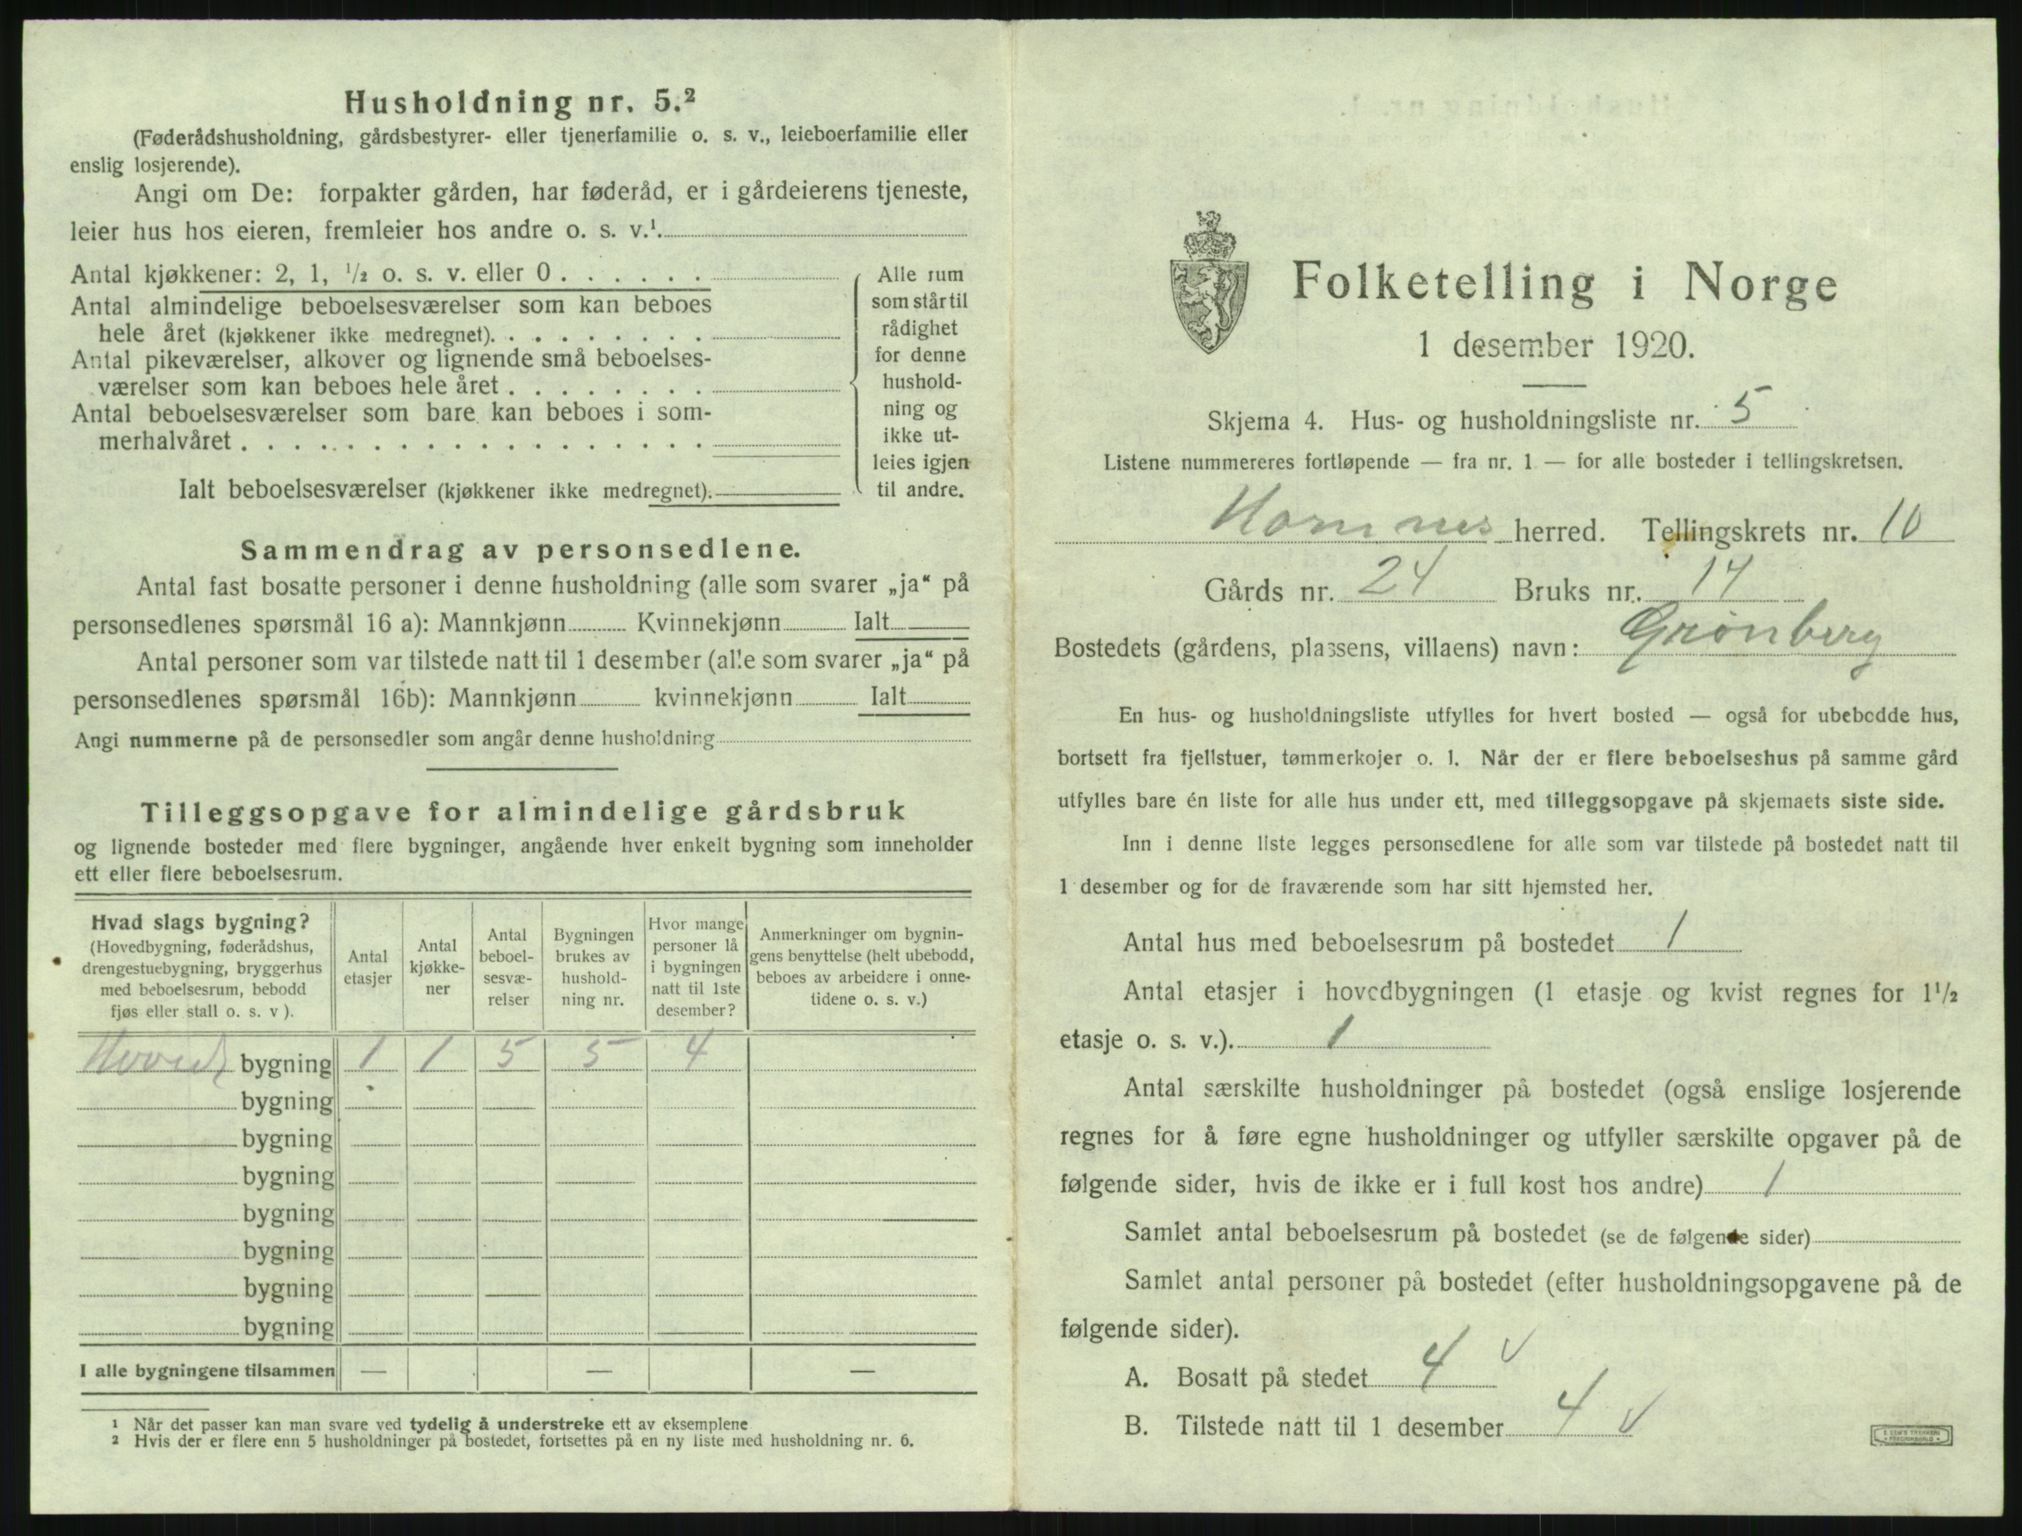 Husholdning nr. 5.²
(Føderådshusholdning, gårdsbestyrer- eller tjenerfamilie o. s. v., leieboerfamilie eller
enslig losjerende).
Angi om De: forpakter gården, har føderåd, er i gårdeierens tjeneste,
leier hus hos eieren, fremleier hos andre o. s. v.¹.
Antal kjøkkener: 2, 1, ½ o. s. v. eller 0
Antal almindelige beboelsesværelser som kan beboes
hele året (kjøkkener ikke medregnet).
Antal pikeværelser, alkover og lignende små beboelses-
værelser som kan beboes hele året
Antal beboelsesværelser som bare kan beboes i som-
merhalvåret
Ialt beboelsesværelser (kjøkkener ikke medregnet).
Alle rum
som står til
rådighet
for denne
hushold-
ning og
ikke ut-
leies igjen
til andre.
Sammendrag av personsedlene.
Antal fast bosatte personer i denne husholdning (alle som svarer „ja“ på
personsedlenes spørsmål 16 a): Mannkjønn Kvinnekjønn Ialt
Antal personer som var tilstede natt til 1 desember (alle som svarer „ja“ på
personsedlenes spørsmål 16b): Mannkjønn kvinnekjønn Ialt
Angi nummerne på de personsedler som angår denne husholdning
Tilleggsopgave for almindelige gårdsbruk
og lignende bosteder med flere bygninger, angående hver enkelt bygning som inneholder
ett eller flere beboelsesrum.
Hvad slags bygning?
(Hovedbygning, føderådshus,
drengestuebygning, bryggerhus
med beboelsesrum, bebodd
fjøs eller stall o. s. v ).
Antal
etasjer
Antal
kjøkke-
ner
Antal
beboel-
sesvæ-
relser
Bygningen
brukes av
hushold-
ning nr.
Hvor mange
personer lå
i bygningen
natt til 1ste
desember?
Anmerkninger om bygnin-
gens benyttelse (helt ubebodd,
beboes av arbeidere i onne-
tidene o. s. v.)
Hoved bygning 1 1 5 5 4
bygning
bygning
bygning
bygning
bygning
bygning
bygning
I alle bygningene tilsammen — — —
¹ Når det passer kan man svare ved tydelig å understreke ett av eksemplene
² Hvis der er flere enn 5 husholdninger på bostedet, fortsettes på en ny liste med husholdning nr. 6.
Folketelling i Norge
1 desember 1920.
Skjema 4. Hus- og husholdningsliste nr. 5
Listene nummereres fortløpende — fra nr. 1 — for alle bosteder i tellingskretsen.
Hornnes herred. Tellingskrets nr. 10
Gårds nr. 24 Bruks nr. 14
Bostedets (gårdens, plassens, villaens) navn: Grønberg
En hus- og husholdningsliste utfylles for hvert bosted — også for ubebodde hus,
bortsett fra fjellstuer, tømmerkojer o. l. Når der er flere beboelseshus på samme gård
utfylles bare én liste for alle hus under ett, med tilleggsopgave på skjemaets siste side.
Inn i denne liste legges personsedlene for alle som var tilstede på bostedet natt til
1 desember og for de fraværende som har sitt hjemsted her.
Antal hus med beboelsesrum på bostedet 1
Antal etasjer i hovedbygningen (1 etasje og kvist regnes for 1½
etasje o. s. v.). 1
Antal særskilte husholdninger på bostedet (også enslige losjerende
regnes for å føre egne husholdninger og utfyller særskilte opgaver på de
følgende sider, hvis de ikke er i full kost hos andre) 1
Samlet antal beboelsesrum på bostedet (se de følgende sider)
Samlet antal personer på bostedet (efter husholdningsopgavene på de
følgende sider).
A. Bosatt på stedet 4 v
B. Tilstede natt til 1 desember 4 v